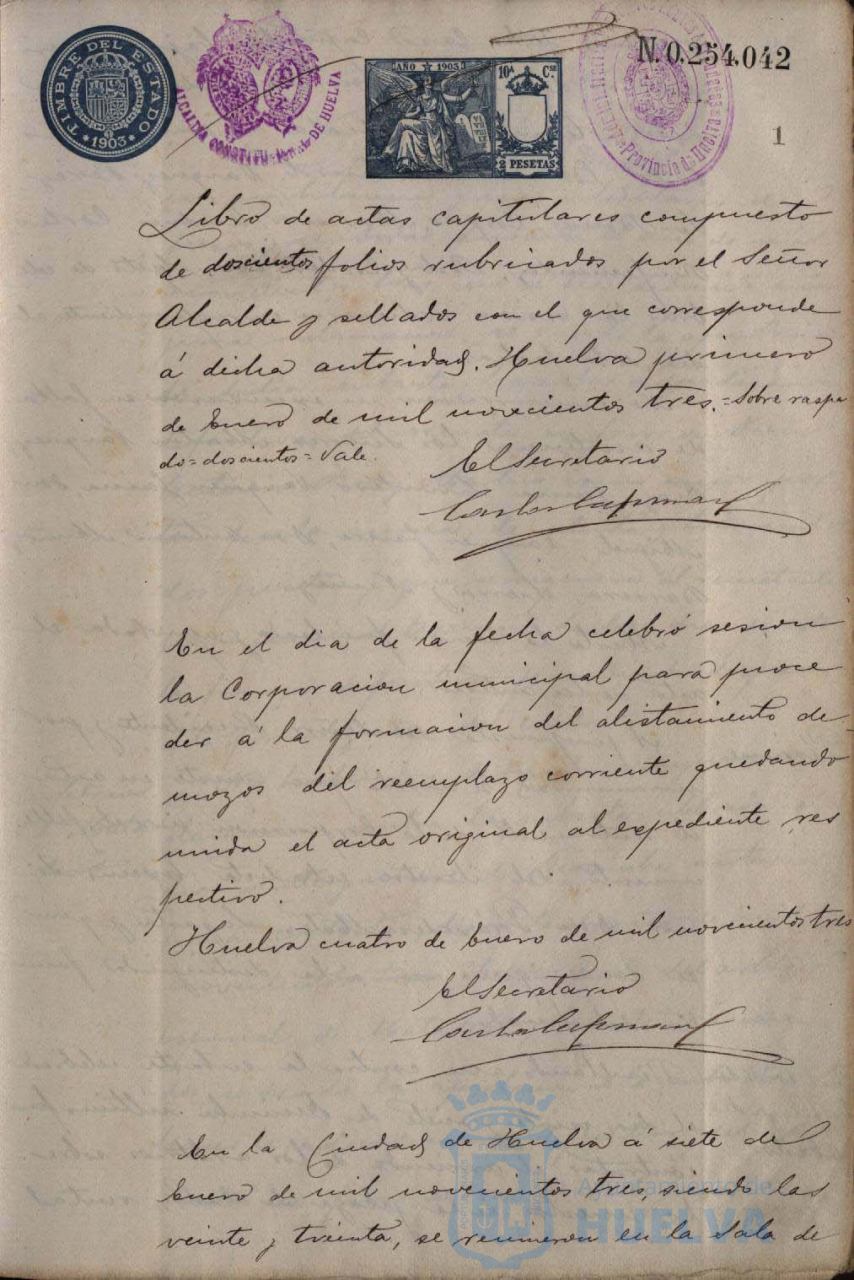 TIMBRE DEL ESTADO
*1903*
ALCALDIA CONSTITU DE HUELVA
AÑO * 1903
10ª Cse
2 PESETAS
N.0.254,042
Provincia de Huelva
1
Libro de actas capitulares compuesto
de doscientos folios rubricados por el Señor
Alcalde y sellados con el que corresponde
á dicha autoridad. Huelva primero
de Enero de mil novecientos tres.=Sobre raspa
do=doscientos=Vale.
El Secretario
En el dia de la fecha celebró sesion
la Corporacion municipal para proce
der á la formacion del alistamiento de
mozos del reemplazo corriente quedando
unida el acta original al expediente res
pectivo.
Huelva cuatro de Enero de mil novecientos tres
El Secretario
En la Ciudad de Huelva á siete de
Enero de mil novecientos tres, siendo las
veinte y treinta, se reunieron en la Sala de
Ayuntamiento de
HUELVA